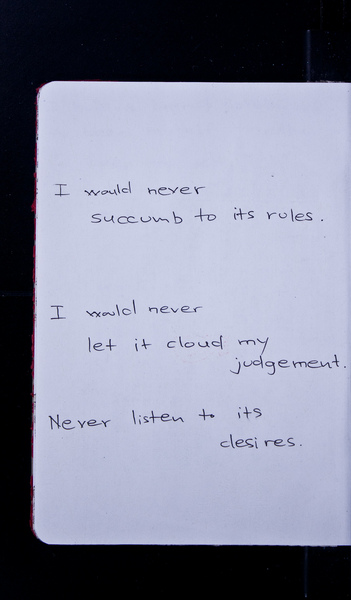 I would never
succumb to its rules.
I would never
let it cloud my
judgement.
Never listen to its
desires.